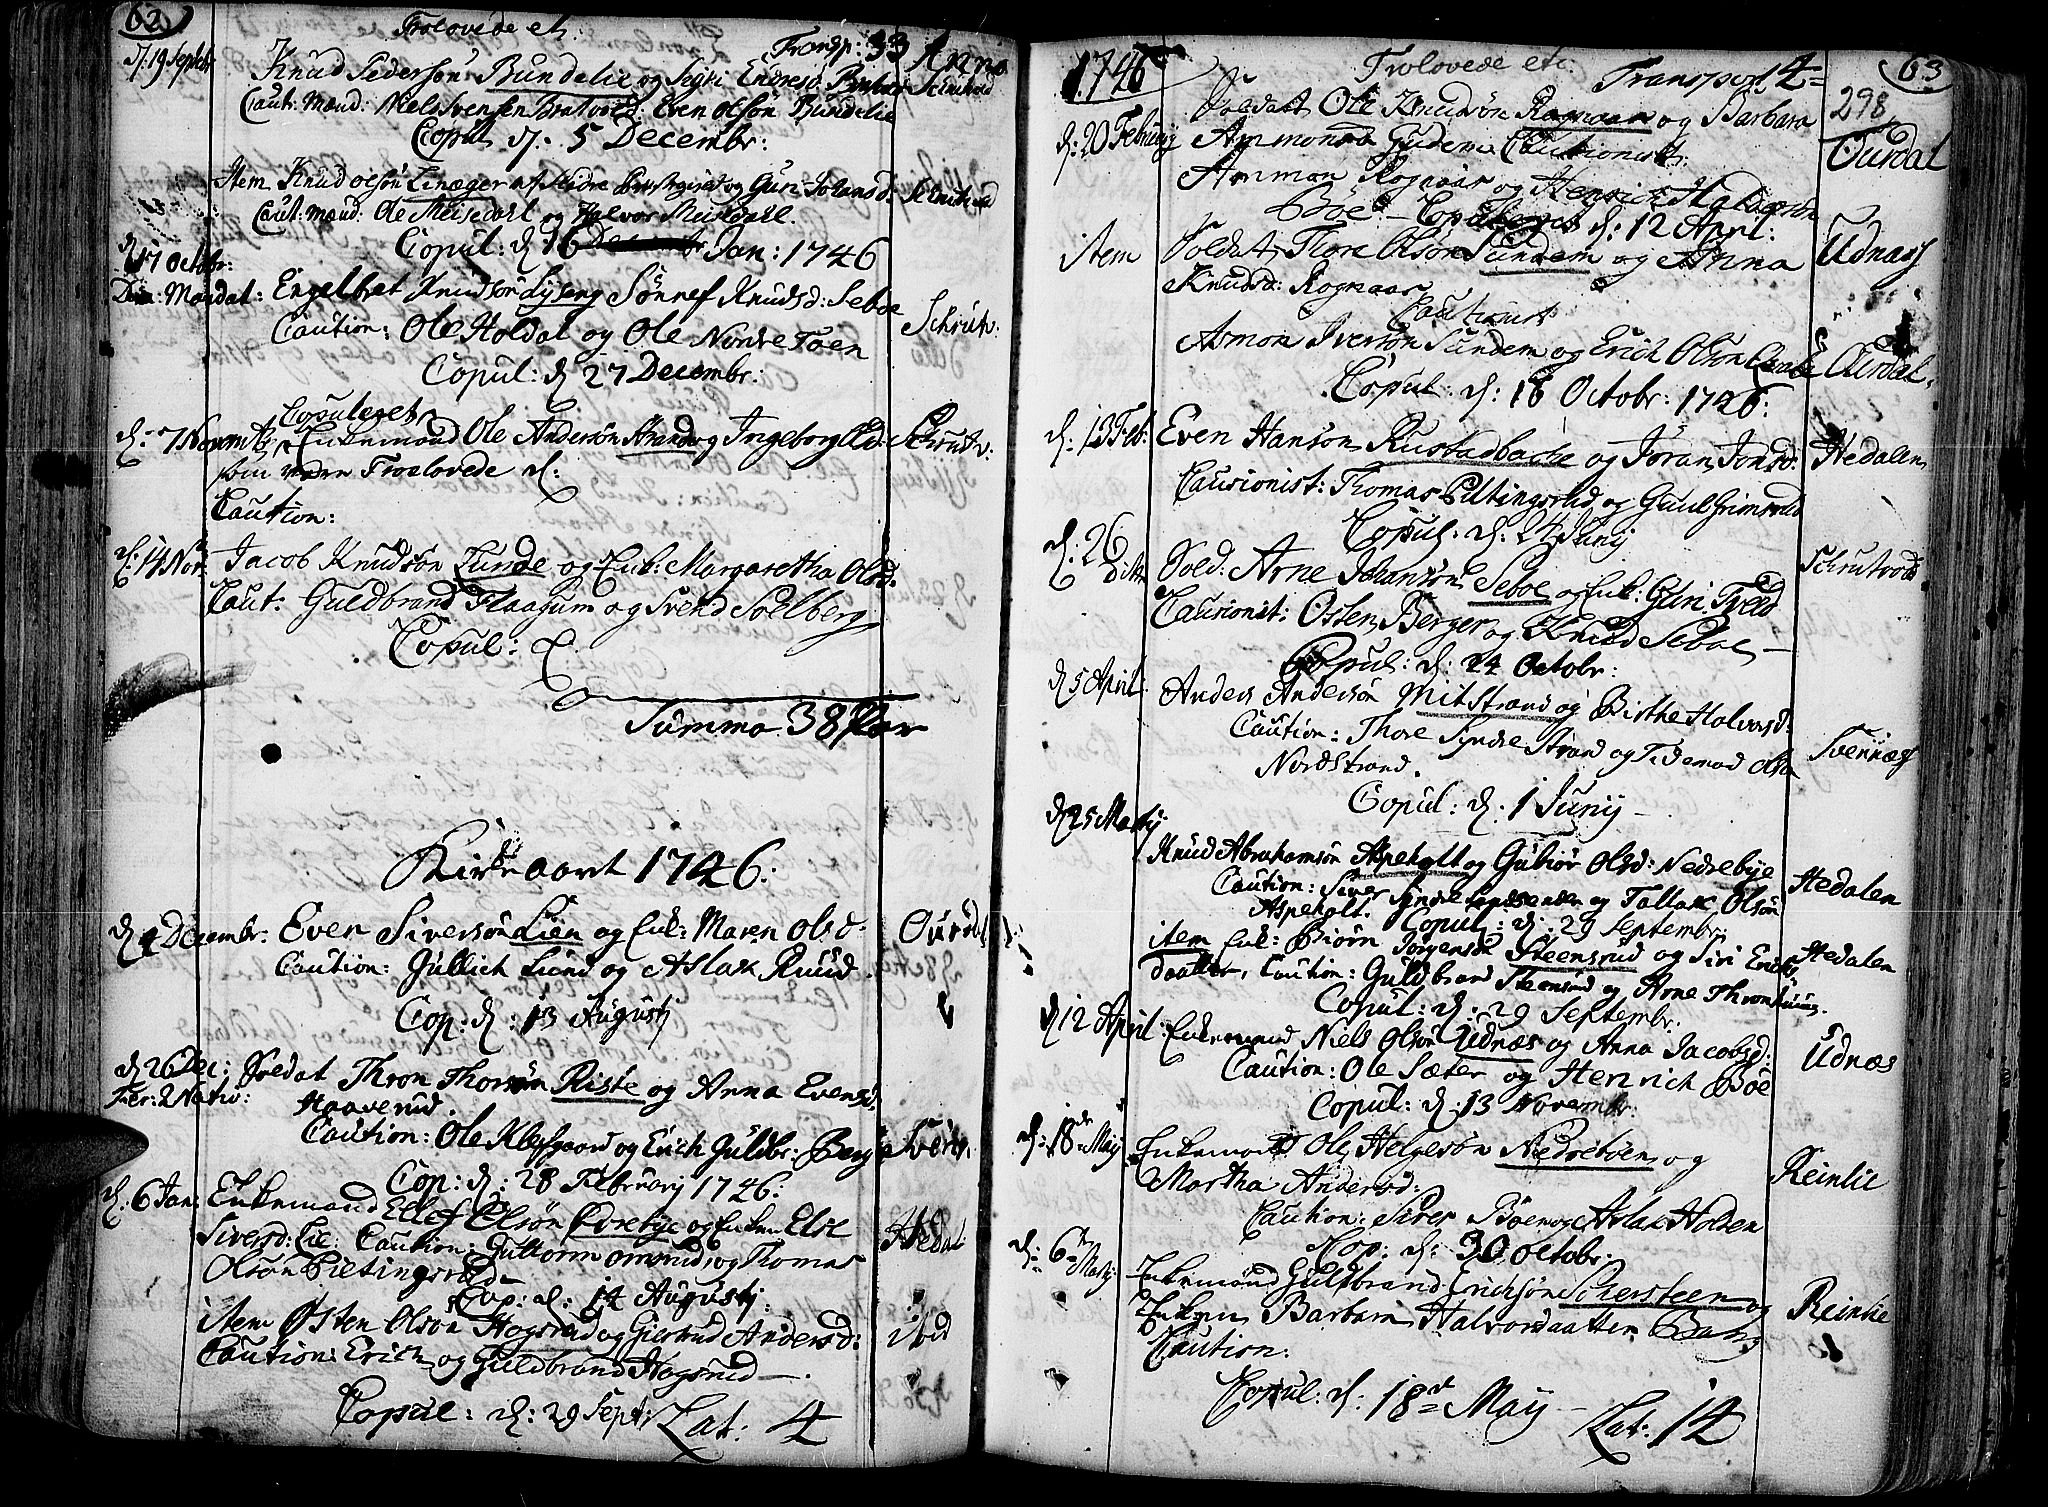 62.
Trolovede etc:
Transp: 33 Anno
d: 19 Septbr
Knud Pedersøn Bundelie og Sigri Endresd: Schrutvold
Caut: Mænd: Niels Svensen Bratvold: Even Olsøn Bundelie
Copul d: 5 Decembr:
Item Knud Olsøn af Slidre og Guri Johansd: Schrutvold
Caut: Mænd: Ole Meisedahl og Halvor Meisedahl.
Copul: d: 16 Jan: 1746
d 17 Octobr:
Engelbret Knudsøn Lyseng Sønnef Knudsd: Seboe Schrutv:
Caution: Ole Holdal og Ole Nordre Tøen
Copul: d 27 Decembr:
Copuleret
d: 7 Novembr Enkemand Ole Andersøn Strand og Ingeborg Schrutv:
som vare Troelovede d:
Caution:
d: 14 Nov: Jacob Knudsøn Tunde og Enk: Margaretha Olsd:
Caut: Guldbrand Flaagum og Svend Solberg
Copul: d.
Summa 38 Par
Kirke aaret 1746:
d 4 Decembr: Even Siversøn Lien og Enk: Maren Olsd: Ourdal
Caution: Gullich Liend og Aslak Ruud.
Cop: d: 13 Augustj
d 26 Dec: Soldat Thron Thorsøn Riste og Anna Evensd:
Fer: 2 Nativ: Haaverud.
Caution: Ole Klefsgaard og Erich Guldbr: Berg Svenn:
Cop: d: 28 February 1746:
d. 6 Jan: Enkemand Ellef Olsøn Ødrebye og Enken Else Hedal
Siversd: Lie: Caution: Guttorm Omsrud og Thomas
Olsøn Piltingsrud
Cop: d: 14 Augustj:
item Østen Olsøn Hogsrud og Giertrud Andersd: ibid
Caution: Erich og Guldbrand Hogsrud.
Copul: d: 29 Sept: Lat: 4
1746
Trolovede etc:
Transport 4
63
298
d: 20 February Soldat Ole Knudsøn Rognaas og Barbara Ourdal
Ammonsd Gudem. Cautionist:
Ammon Rognaas og Henrich Haldorsøn
Bøe Copuleret d: 12 April:
item Soldat Thore Olsøn Sundem og Anna Udnæs
Knudsd: Rognaas
Cautionist
Amon Iversøn Sundem og Erich Olsøn Ourdal
Copul: d: 18 Octobr: 1746:
d: 13 Feb: Even Hansøn Rustadbache og Jøran Jonsd: Hedalen
Causionist: Thomas Piltingsrud og Guul Grimsrud
Copul: d: 24 Junij
d: 26 Ditto Sold: Arne Johansøn Seboe og Enk: Guri Tveed Schrutvold
Causionist: Osten Berger og Knud Seboe
Copul: d: 24 Octobr:
d 5 April: Anders Andersøn Mitstrand og Birthe Halvorsd: Svennæs
Caution: Thore Syndre Strand og Tidemand Olsøn
Nordstrand.
Copul: d. 1 Junij
d 25 Martij
Knud Abrahamsøn Aspeholt og Gubiør Olsd: Nedrebye Hedalen
Caution: Siver Syndre og Tollak Olsøn
Aspeholt. Copul: d: 29 Septembr:
item Enk: Biørn Jorgensøn Steensrud og Siri Erichs Hedalen
daatter, Caution: Guldbrand Steensrud og Arne Thronhuus.
Copul: d: 29 Septembr:
d 12 April: Enkemand Niels Olsøn Udnæs og Anna Jacobsd: Udnæs
Caution: Ole Sæter og Henrich Bøe
Copul: d: 13 Novembr:
d: 18de May Enkemand Ole Helgesøn Nedretøen og Reinlie
Martha Andersd:
Caution: Siver Bøen og Aslak Holden
Cop: d: 30 Octobr:
d: 6te Martj: Enkemand Guldbrand Erichsøn Schersteen og Reinlie
Enken Barbara Halvorsdaatter Bang
Caution:
Copul: d: 18de May
Lat: 14